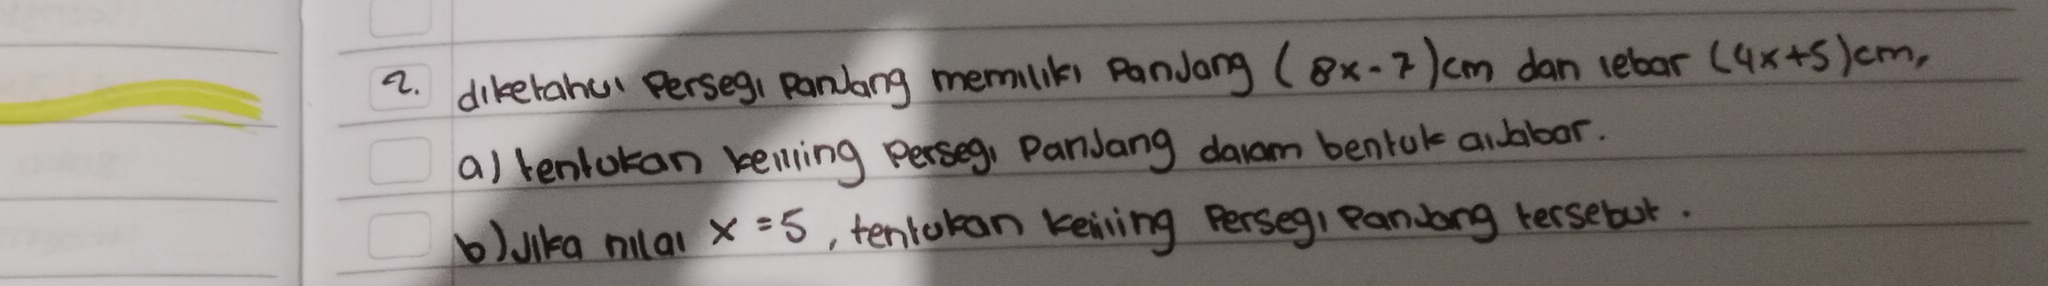 2. diketahui Persegi Panjang memiliki Panjang (8x-7)cm dan lebar (4x+5)cm,
a) tentukan keliling Persegi Panjang dalam bentuk aljabar.
b) Jika nilai x = 5, tentukan keliling Persegi Panjang tersebut.